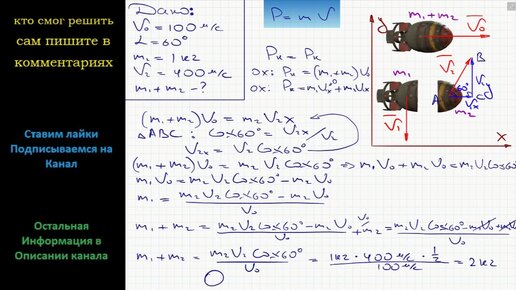 кто смог решить
сам пишите в
комментариях
Ставим лайки
Подписываемся на
Канал
Остальная
Информация в
Описании канала
Дано:
V₀ = 100 м/с
α = 60°
m₂ = 1 кг
V₂ = 400 м/с
m₁ + m₂ - ?
P = m V
Pн = Pк
ox: Pн = (m₁+m₂)V₀
ox: Pк = m₂V₂x + m₁V₁x
y
m₁+m₂
V₀
m₁
V₁
V₂
B
A
60°
C
m₂
x
(m₁+m₂)V₀ = m₂V₂x
△ABC: cos60° = V₂x/V₂
V₂x = V₂cos60°
(m₁+m₂)V₀ = m₂V₂cos60° ⇒ m₁V₀ + m₂V₀ = m₂V₂cos60°
m₁V₀ = m₂V₂cos60° - m₂V₀
m₁ = (m₂V₂cos60° - m₂V₀)/V₀
m₁ + m₂ = (m₂V₂cos60° - m₂V₀)/V₀ + m₂ = (m₂V₂cos60° - m₂V₀ + m₂V₀)/V₀
m₁ + m₂ = m₂V₂cos60°/V₀ = (1кг · 400 м/с · 1/2)/(100 м/с) = 2кг